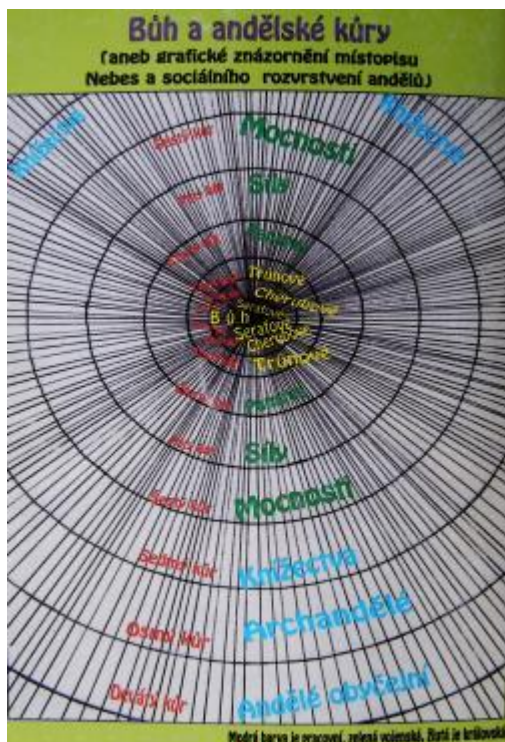 Bůh a andělské kůry
(aneb grafické znázornění místopisu
Nebes a sociálního rozvrstvení andělů)
Šestý kůr Mocnosti
Pátý kůr Síly
Trůnové
Cherubové
Serafové
Bůh
Serafové
Cherubové
Trůnové
Pátý kůr Síly
Šestý kůr Mocnosti
Sedmý kůr Knížectva
Osmý kůr Archandělé
Devátý kůr Andělé obyčejní
Modrá barva je pracovní, zelená vojenská, žlutá je královská